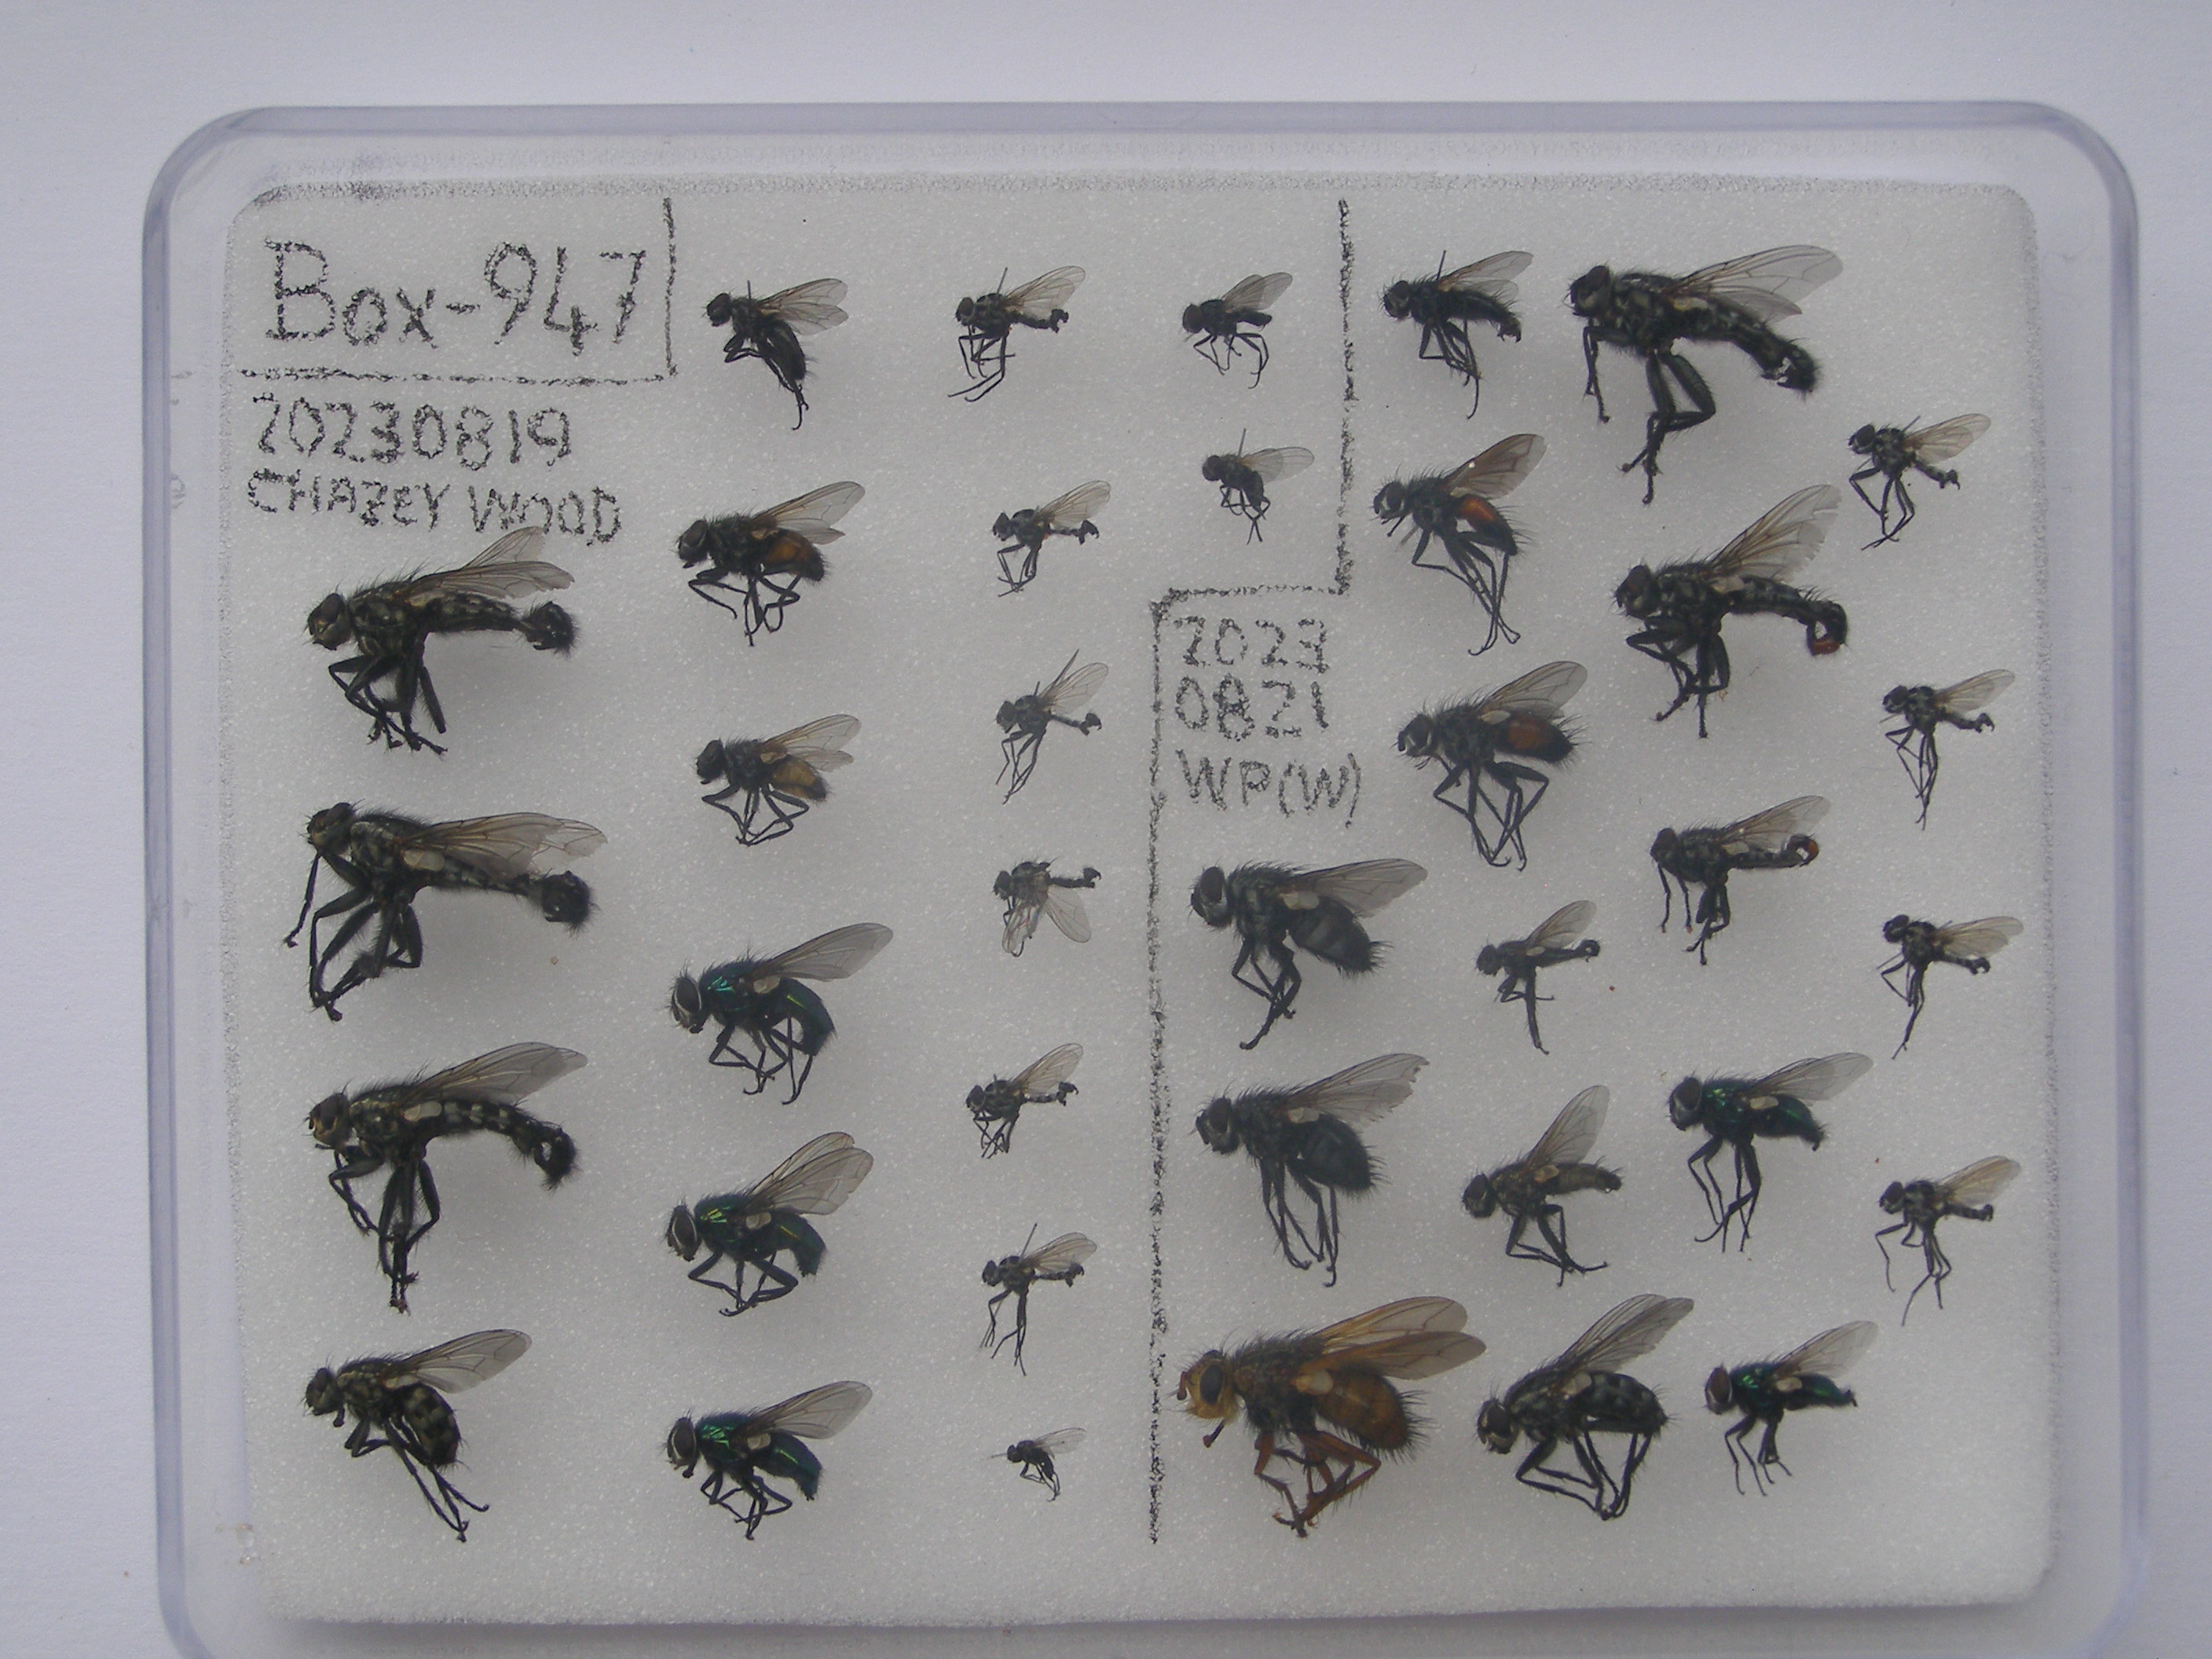 Box-947
20230819
CHAZEY WOOD
2023
0821
WP(W)